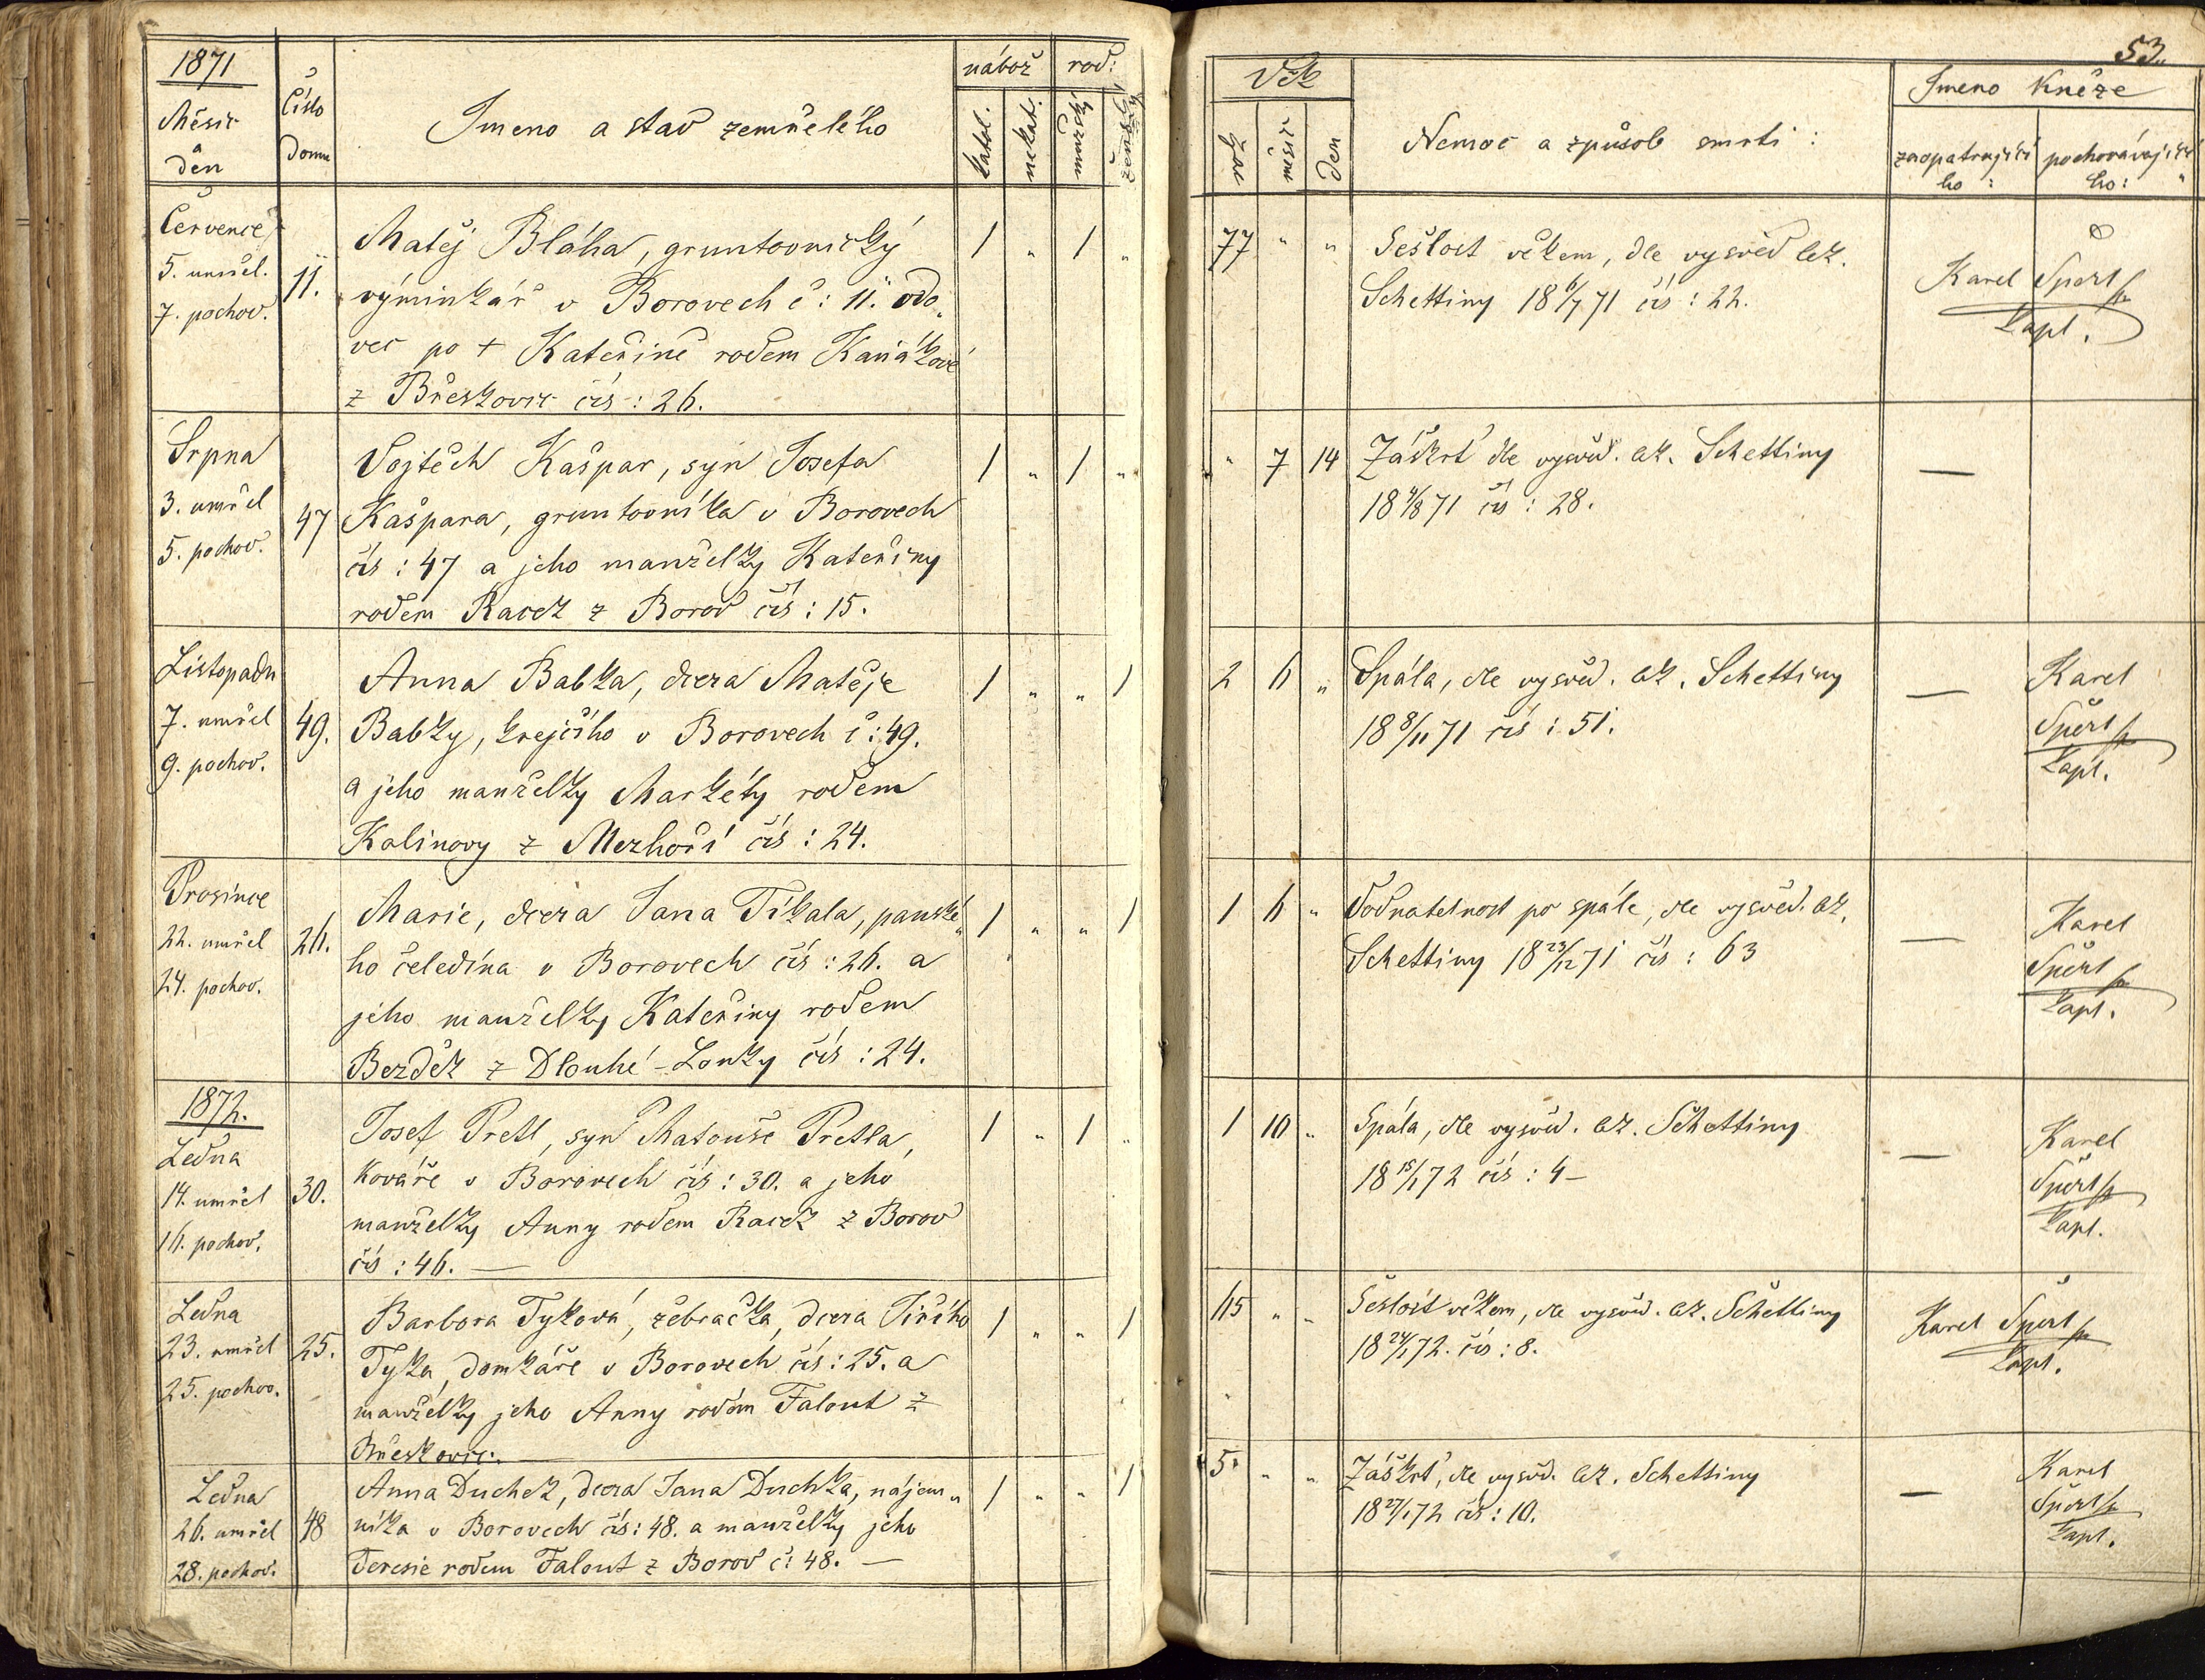 53.
1871
Měsíc
den
Číslo
domu
Jmeno a stav zemřelého
nábož
rod:
katol.
nekat.
mužský
ženský
Věk
rok
měsíc
den
Nemoc a způsob smrti :
Jmeno Kněze
zaopatrujícího :
pochovávajícího :
Července
5. umřel.
7. pochov.
11.
Matěj Bláha, gruntovnický
výminkář v Borovech č : 11. vdo„
vec po + Kateřině rodem Kaňákové
z Břeskovic čís : 26.
1 „ 1 „
77 „ „
Sešlost věkem, dle vysvěd lék.
Schettiny 18 6/7 71 čís : 22.
Karel Šperl
kapl.
Srpna
3. umřel
5. pochov.
47
Vojtěch Kašpar, syn Josefa
Kašpara, gruntovníka v Borovech
čís : 47 a jeho manželky Kateřiny
rodem Racek z Borov čís : 15.
1 „ 1 „
„ 7 14
Záškrt dle vysvěd. lék. Schettiny
18 4/8 71 čís : 28.
—
Listopadu
7. umřel
9. pochov.
49.
Anna Babka, dcera Matěje
Babky, krejčího v Borovech č : 49.
a jeho manželky Markéty rodem
Kalinovy z Mezhoří čís : 24.
1 „ „ 1
2 6 „
Spála, dle vysvěd. lék. Schettiny
18 8/11 71 čís : 51.
—
Karel
Šperl
kapl.
Prosince
22. umřel
24. pochov.
26.
Marie, dcera Jana Tikala, panské„
ho čeledína v Borovech čís : 26. a
jeho manželky Kateřiny rodem
Bezděk z Dlouhé-Louky čís : 24.
1 „ „ 1
1 6 „
Vodnatelnost po spále, dle vysvěd. lék.
Schettiny 18 23/12 71 čís : 63
—
Karel
Šperl
kapl.
1872.
Ledna
14. umřel
16. pochov.
30.
Josef Pretl, syn Matouše Pretla,
Kováře v Borovech čís : 30. a jeho
manželky Anny rodem Racek z Borov
čís : 46. —
1 „ 1 „
1 10 „
Spála, dle vysvěd. lék. Schettiny
18 15/1 72 čís : 4 –
—
Karel
Šperl
kapl.
Ledna
23. umřel
25. pochov.
25.
Barbora Tyková, žebračka, dcera Jiřího
Tyka, domkáře v Borovech čís : 25. a
manželky jeho Anny rodem Falout z
Břeskovic. —
1 „ „ 1
65 „ „
Sešlost věkem, dle vysvěd. lék. Schettiny
18 24/1 72. čís : 8.
Karel Šperl
kapl.
Ledna
26. umřel
28. pochov.
48
Anna Duchek, dcera Jana Duchka, nájem„
níka v Borovech čís : 48. a manželky jeho
Teresie rodem Falout z Borov č : 48. —
1 „ „ 1
5. „ „
Záškrt, dle vysvěd. lék. Schettiny
18 27/1 72 čís : 10.
—
Karel
Šperl
kapl.